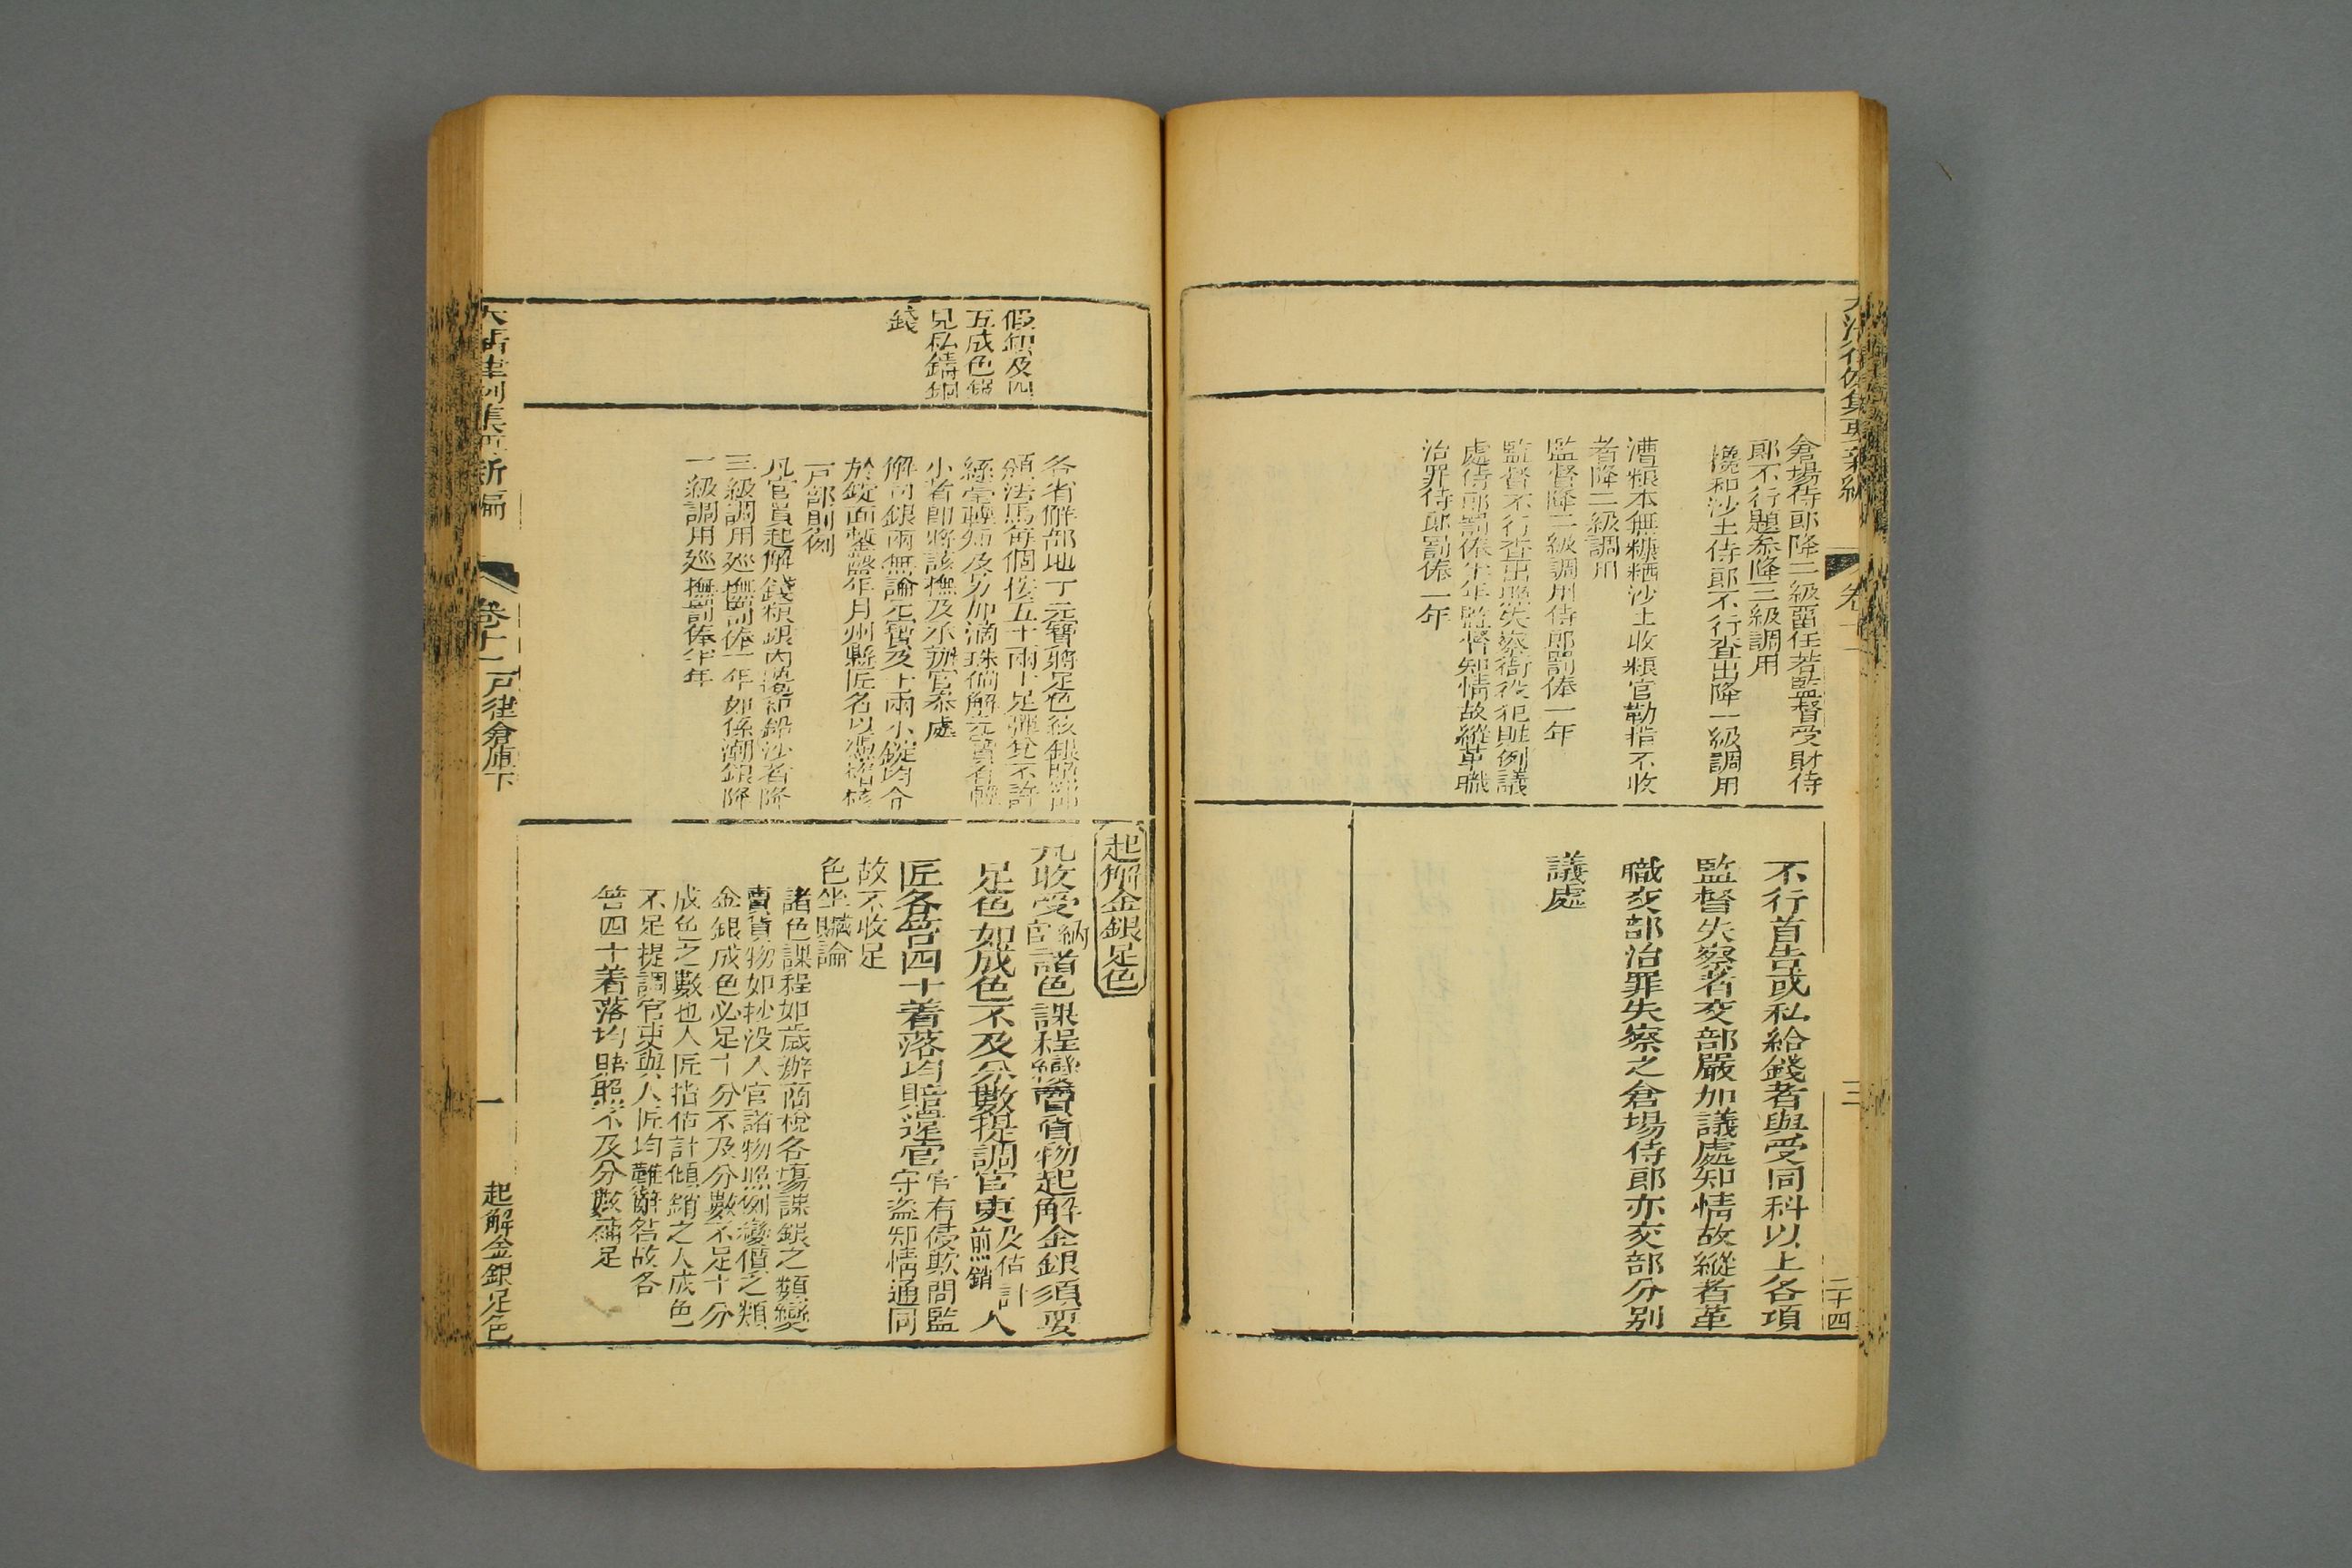 倉塲侍郎降二級畱任若監督受財侍
郎不行題叅降三級調用
攙和沙土侍郎不行查出降一級調用
漕糧本無糠粞沙土收糧官勒掯不收
者降二級調用
監督降二級調用侍郎罰俸一年
監督不行查出照失察衙役犯贓例議
處侍郎罰俸半年監督知情故縱革職
治罪侍郎罰俸一年
不行首告或私給錢者與受同科以上各項
監督失察者交部嚴加議處知情故縱者革
職交部治罪失察之倉塲侍郎亦交部分别
議處
二十四
假銀及四
五成色銀
見私鑄銅
錢
各省解部地丁元寶將足色紋銀照部
頒法馬每個傾五十兩十足彈兌不許
絲毫輕短及另加滴珠倘解元寶有輕
小者即將該撫及承辦官叅處
解司銀兩無論元寶及十兩小錠均令
於錠面鏨鑿年月州縣匠名以憑稽核
戸部則例
凡官員起解錢糧銀内攙和鉛沙者降
三級調用廵撫罰俸一年如係潮銀降
一級調用廵撫罰俸半年
起解金銀足色
凡收受納官諸色課程變賣貨物起解金銀須要
足色如成色不及分數提調官吏及估計煎銷人
匠各笞四十着落均賠還官官有侵欺問監守盗知情通同
故不收足
色坐贓論
諸色課程如歲辦商稅各塲課銀之類變
賣貨物如抄没入官諸物照例變價之類
金銀成色必足十分不及分數不足十分
成色之數也人匠指估計傾銷之人成色
不足提調官吏與人匠均難辭咎故各
笞四十着落均賠照不及分數補足
大清律例集要新編
卷十一戸律倉庫下
一
起解金銀足色